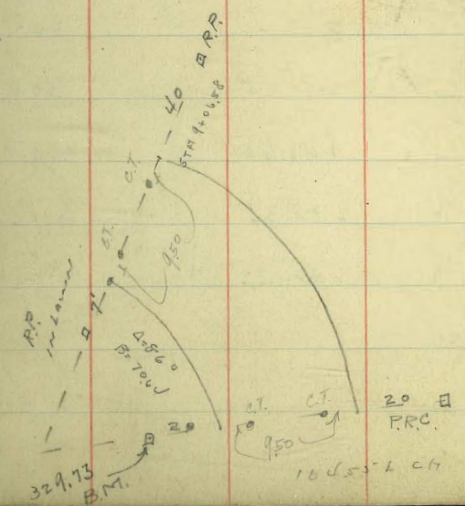 R.P.
40
STA 9+06.58
C.T.
C.T.
9.50
R.P.
IN LAWN
7'
Δ=86°
20
C.T.
C.T.
9.50
20
P.R.C.
329.73
B.M.